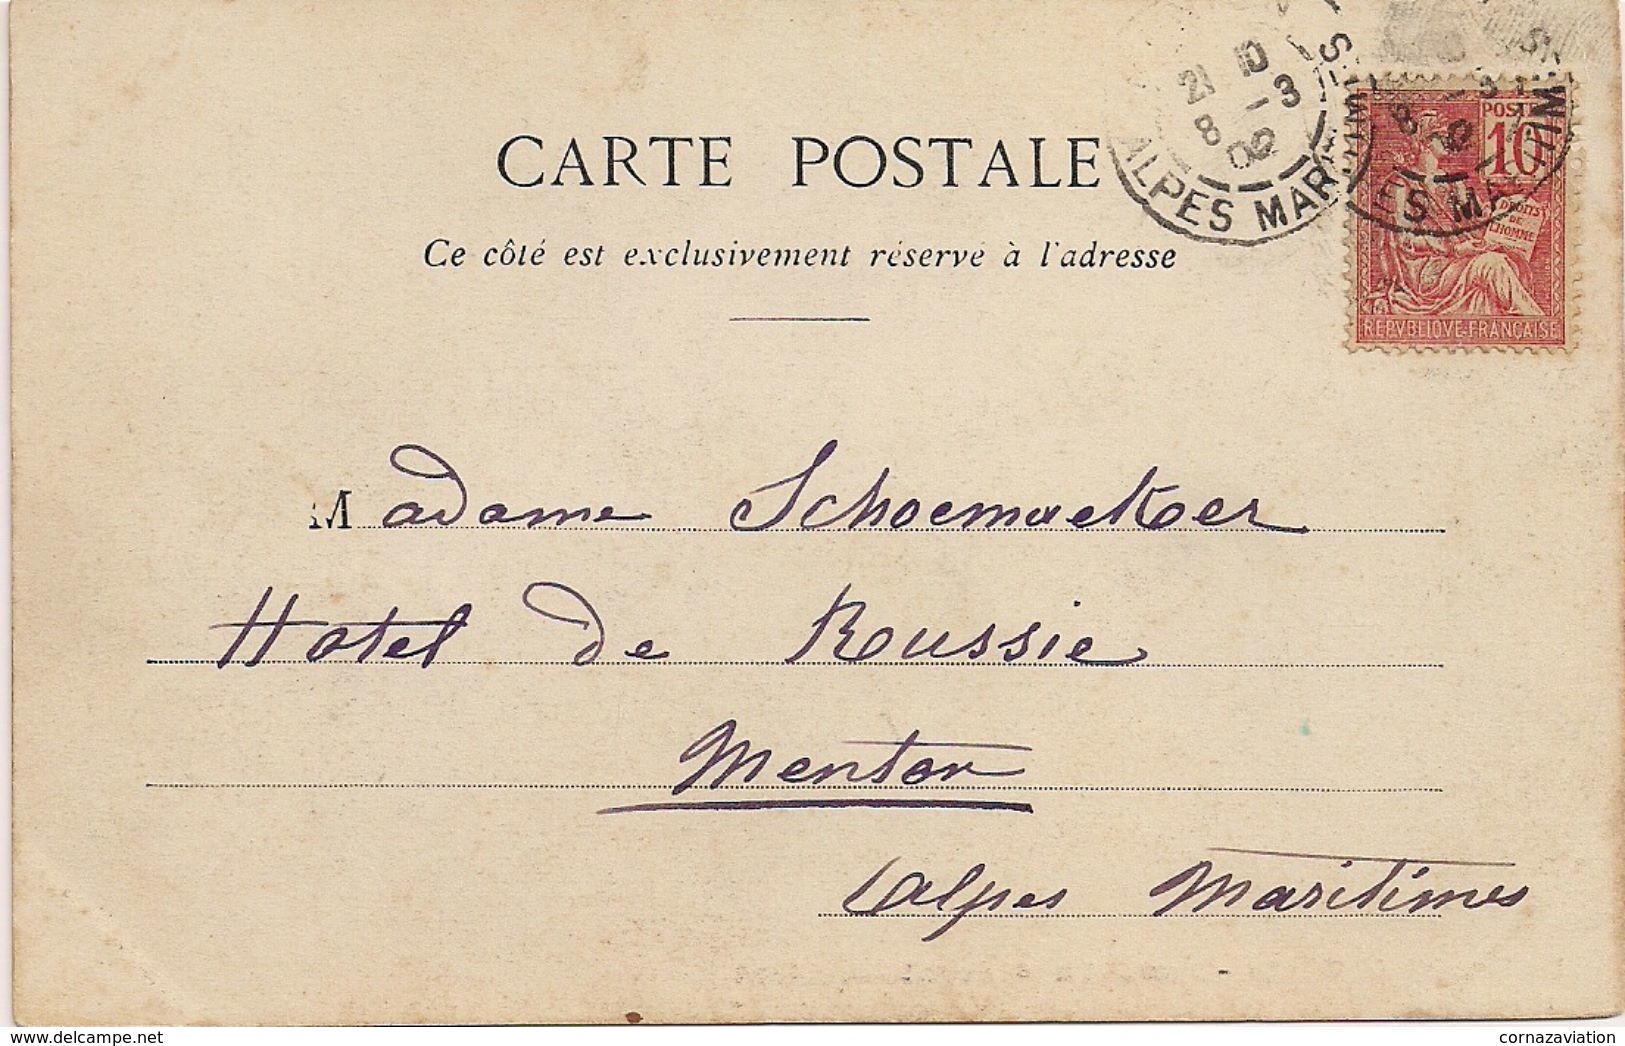 CARTE POSTALE
Ce côté est exclusivement réservé à l'adresse
21 10
8 - 3
02
ALPES MARITIMES
POSTES
10
DROITS
DE
L'HOMME
REPVBLIQVE FRANÇAISE
Madame Schoemaeker
Hotel de Russie
Menton
Alpes Maritimes
delcampe.net
cornazaviation